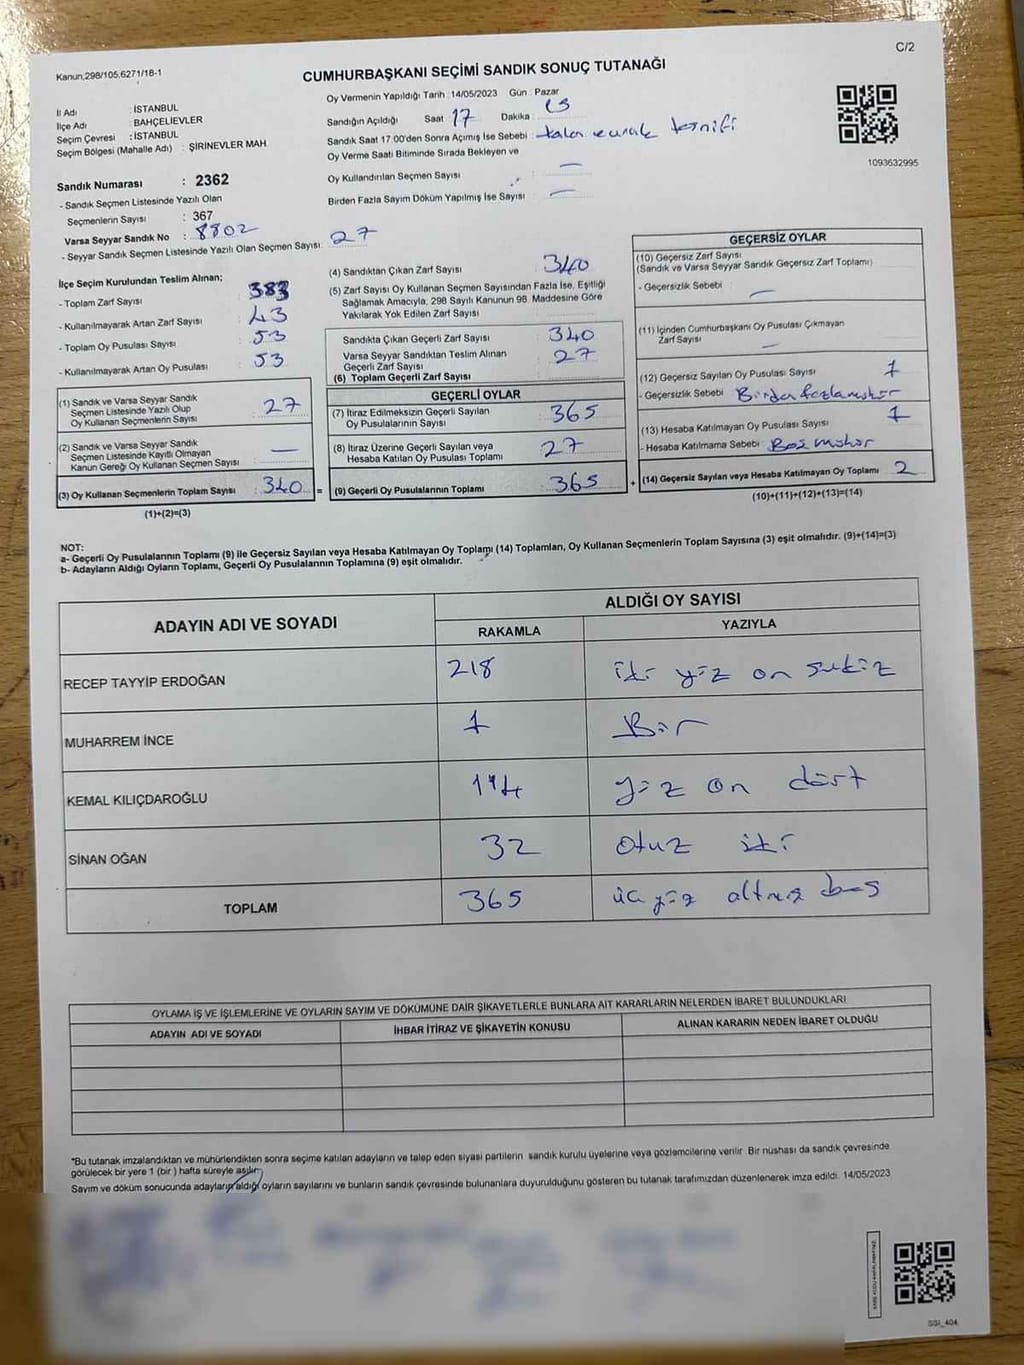 C/2
Kanun;298/105,6271/18-1
CUMHURBAŞKANI SEÇİMİ SANDIK SONUÇ TUTANAĞI
İl Adı : İSTANBUL
İlçe Adı : BAHÇELİEVLER
Seçim Çevresi : İSTANBUL
Seçim Bölgesi (Mahalle Adı) : ŞİRİNEVLER MAH
Sandık Numarası : 2362
- Sandık Seçmen Listesinde Yazılı Olan
Seçmenlerin Sayısı : 367
Varsa Seyyar Sandık No : 8802
- Seyyar Sandık Seçmen Listesinde Yazılı Olan Seçmen Sayısı: 27
Oy Vermenin Yapıldığı Tarih : 14/05/2023 Gün : Pazar
Sandığın Açıldığı Saat : 17 Dakika :
Sandık Saat 17:00'den Sonra Açılmış İse Sebebi :
Oy Verme Saati Bitiminde Sırada Bekleyen ve
Oy Kullandırılan Seçmen Sayısı : —
Birden Fazla Sayım Döküm Yapılmış İse Sayısı : —
1093632995
İlçe Seçim Kurulundan Teslim Alınan;
- Toplam Zarf Sayısı : 383
- Kullanılmayarak Artan Zarf Sayısı : 43
- Toplam Oy Pusulası Sayısı : 53
- Kullanılmayarak Artan Oy Pusulası : 53
(1) Sandık ve Varsa Seyyar Sandık
Seçmen Listesinde Yazılı Olup
Oy Kullanan Seçmenlerin Sayısı : 27
(2) Sandık ve Varsa Seyyar Sandık
Seçmen Listesinde Kayıtlı Olmayan
Kanun Gereği Oy Kullanan Seçmen Sayısı : —
(3) Oy Kullanan Seçmenlerin Toplam Sayısı : 340 =
(1)+(2)=(3)
(4) Sandıktan Çıkan Zarf Sayısı : 340
(5) Zarf Sayısı Oy Kullanan Seçmen Sayısından Fazla İse, Eşitliği
Sağlamak Amacıyla; 298 Sayılı Kanunun 98. Maddesine Göre
Yakılarak Yok Edilen Zarf Sayısı :
Sandıkta Çıkan Geçerli Zarf Sayısı : 340
Varsa Seyyar Sandıktan Teslim Alınan
Geçerli Zarf Sayısı : 27
(6) Toplam Geçerli Zarf Sayısı :
GEÇERLİ OYLAR
(7) İtiraz Edilmeksizin Geçerli Sayılan
Oy Pusulalarının Sayısı : 365
(8) İtiraz Üzerine Geçerli Sayılan veya
Hesaba Katılan Oy Pusulası Toplamı : 27
(9) Geçerli Oy Pusulalarının Toplamı : 365 +
GEÇERSİZ OYLAR
(10) Geçersiz Zarf Sayısı
(Sandık ve Varsa Seyyar Sandık Geçersiz Zarf Toplamı)
- Geçersizlik Sebebi : —
(11) İçinden Cumhurbaşkanı Oy Pusulası Çıkmayan
Zarf Sayısı : —
(12) Geçersiz Sayılan Oy Pusulası Sayısı : 1
- Geçersizlik Sebebi : Birden fazla mühür
(13) Hesaba Katılmayan Oy Pusulası Sayısı : 1
- Hesaba Katılmama Sebebi : Boş mühür
(14) Geçersiz Sayılan veya Hesaba Katılmayan Oy Toplamı : 2
(10)+(11)+(12)+(13)=(14)
NOT:
a- Geçerli Oy Pusulalarının Toplamı (9) ile Geçersiz Sayılan veya Hesaba Katılmayan Oy Toplamı (14) Toplamları, Oy Kullanan Seçmenlerin Toplam Sayısına (3) eşit olmalıdır. (9)+(14)=(3)
b- Adayların Aldığı Oyların Toplamı, Geçerli Oy Pusulalarının Toplamına (9) eşit olmalıdır.
ADAYIN ADI VE SOYADI
ALDIĞI OY SAYISI
RAKAMLA YAZIYLA
RECEP TAYYİP ERDOĞAN 218 iki yüz on sekiz
MUHARREM İNCE 1 Bir
KEMAL KILIÇDAROĞLU 114 yüz on dört
SİNAN OĞAN 32 otuz iki
TOPLAM 365 üç yüz altmış beş
OYLAMA İŞ VE İŞLEMLERİNE VE OYLARIN SAYIM VE DÖKÜMÜNE DAİR ŞİKAYETLERLE BUNLARA AİT KARARLARIN NELERDEN İBARET BULUNDUKLARI
ADAYIN ADI VE SOYADI İHBAR İTİRAZ VE ŞİKAYETİN KONUSU ALINAN KARARIN NEDEN İBARET OLDUĞU
*Bu tutanak imzalandıktan ve mühürlendikten sonra seçime katılan adayların ve talep eden siyasi partilerin sandık kurulu üyelerine veya gözlemcilerine verilir. Bir nüshası da sandık çevresinde
görülecek bir yere 1 (bir ) hafta süreyle asılır.
Sayım ve döküm sonucunda adayların aldığı oyların sayılarını ve bunların sandık çevresinde bulunanlara duyurulduğunu gösteren bu tutanak tarafımızdan düzenlenerek imza edildi. 14/05/2023
SSI_404